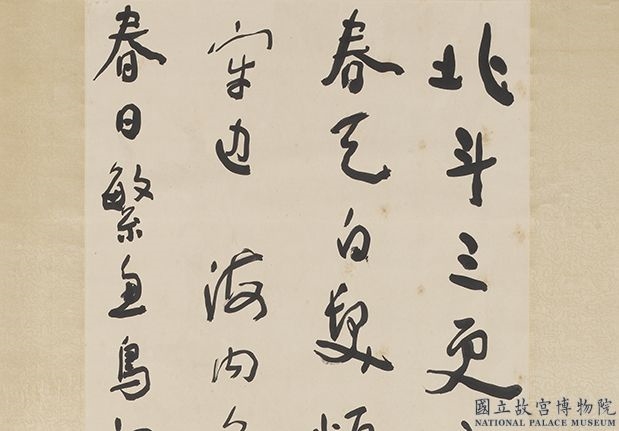 北斗三更
春天白髮煩
牢边 海内
春日繁魚鳥
國立故宮博物院
NATIONAL PALACE MUSEUM